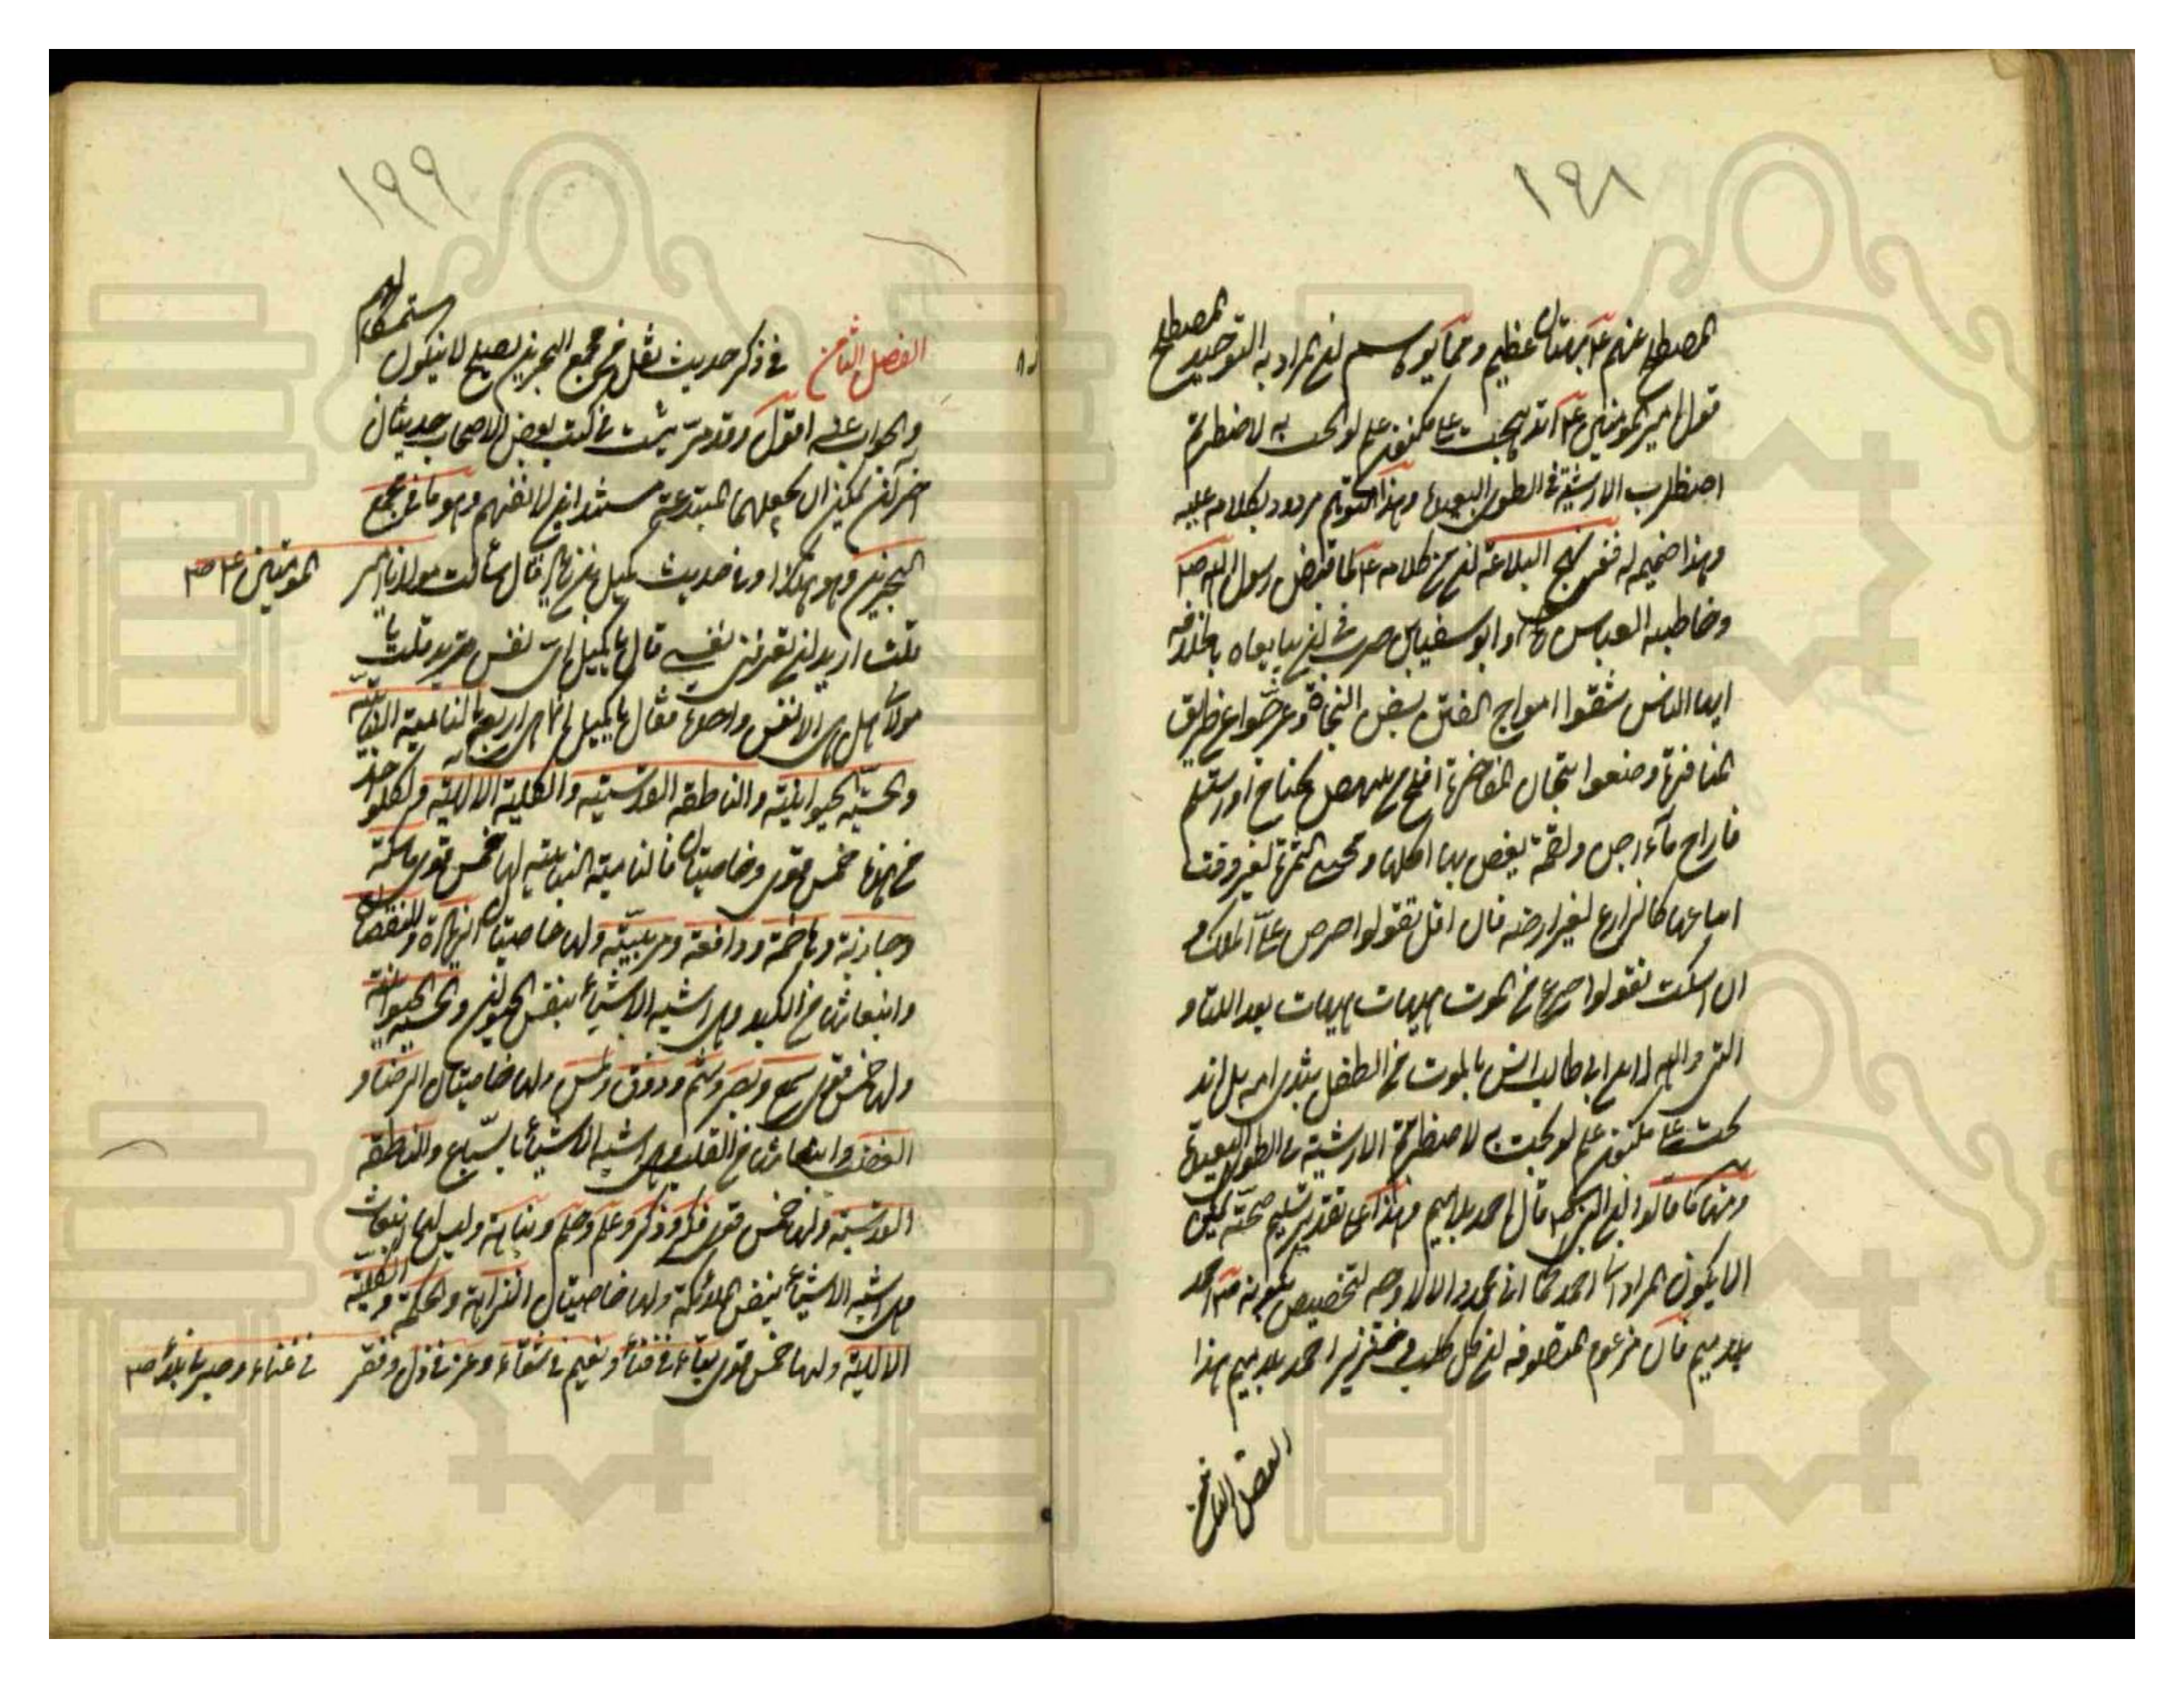 ١٩٨
المصطلح عنهم ع بهتان عظيم ومما يوكا سهم ان المراد به التوحيد المصطلح
قول امير المؤمنين ع اندمجت على مكنون علم لو ابحت به لاضطربتم
اضطراب الارشية في الطوى البعيدة وهذا التوهم مردود بكلامه عليه
وهذا ضميمه له ففي نهج البلاغة ان من كلامه ع لما قبض رسول الله ص
وخاطبه العباس رض وابو سفيان بن حرب في ان يبايعاه بالخلافة
ايها الناس شقوا امواج الفتن بسفن النجاة وعرجوا عن طريق
المنافرة وضعوا تيجان المفاخرة افلح من نهض بجناح او استسلم
فاراح ماء اجن ولقمة يغص بها اكلها ومجتنى الثمرة لغير وقت
ايناعها كالزارع لغير ارضه فان اقل تقولوا حرص على الملك و
ان اسكت تقولوا جزع من الموت هيهات هيهات بعد اللتيا و
التي والله لابن ابي طالب انس بالموت من الطفل بثدي امه بل اند
مجت على مكنون علم لو بحت به لاضطربتم الارشية في الطوى البعيدة
ومنها ما قالوا ان النبي ص قال انا احمد بلا ميم وهذا على تقدير تسليم صحته يمكن
ان يكون المراد انا احمد كما انا محمد والا لا وجه لتخصيص
بلا ميم فان مزعوم المتصوفة ان كل كلب وخنزير احمد بلا ميم هذا
الفصل الثامن
١٩٩
الفصل الثامن في ذكر حديث نقل من مجمع البحرين يصلح لان يكون مستمسكا لهم
والجواب عنه اقول وقد مر رايت في كتب بعض الاصحاب حديثان
اخر ان يمكن ان يجعلهما المبتدعة مستندا لانفسهم وهو ما في مجمع
البحرين وهو هكذا وفي حديث كميل بن زياد قال سألت مولانا امير المؤمنين ع ص
قلت اريد ان تعرفني نفسي قال يا كميل اي نفس تريد قلت يا
مولاي هل هي الا نفس واحدة فقال يا كميل انما هي اربعة النامية النباتية
والحسية الحيوانية والناطقة القدسية والكلية الالهية ولكل واحدة
من هذه خمس قوى وخاصيتان فالنامية النباتية لها خمس قوى ماسكة
وجاذبة وهاضمة ودافعة ومربية ولها خاصيتان الزيادة والنقصان
وانبعاثها من الكبد وهي اشبه الاشياء بنفس الحيوان والحسية الحيوانية
ولها خمس قوى سمع وبصر وشم وذوق ولمس ولها خاصيتان الرضا و
الغضب وانبعاثها من القلب وهي اشبه الاشياء بالسباع والناطقة
القدسية ولها خمس قوى فكر وذكر وعلم وحلم ونباهة وليس لها انبعاث
وهي اشبه الاشياء بنفس الملائكة ولها خاصيتان النزاهة والحكمة والكلية
الالهية ولها خمس قوى بقاء في فناء ونعيم في شقاء وعز في ذل وفقر في غناء وصبر في بلاء ص